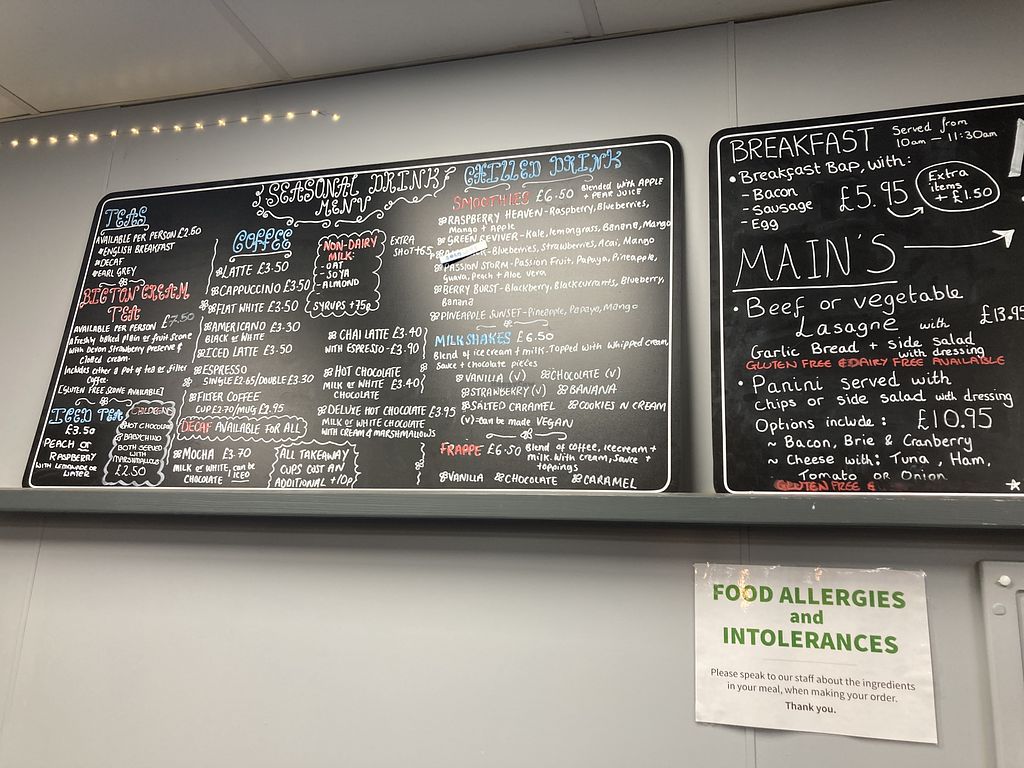 SEASONAL DRINK
MENU
TEAS
AVAILABLE PER PERSON £2.60
ENGLISH BREAKFAST
DECAF
EARL GREY
BIGTON CREAM
TEA
AVAILABLE PER PERSON £7.50
A freshly baked plain or fruit scone
with Devon Strawberry preserve &
clotted cream.
Includes either a pot of tea or filter
Coffee.
[GLUTEN FREE SCONE AVAILABLE]
ICED TEA
£3.50
PEACH OR
RASPBERRY
WITH LEMONADE OR
WATER
CHILDRENS
HOT CHOCOLATE
BABYCHINO
BOTH SERVED
WITH
MARSHMALLOWS
£2.50
COFFEE
LATTE £3.50
CAPPUCCINO £3.50
FLAT WHITE £3.50
AMERICANO £3.30
BLACK or WHITE
ICED LATTE £3.50
ESPRESSO
SINGLE £2.65/DOUBLE £3.30
FILTER COFFEE
CUP £2.70/MUG £2.95
DECAF AVAILABLE FOR ALL
MOCHA £3.70
MILK or WHITE, can be
CHOCOLATE ICED
NON-DAIRY
MILK:
- OAT
- SOYA
- ALMOND
SYRUPS +75p
EXTRA
SHOT+65p
CHAI LATTE £3.40
WITH ESPRESSO - £3.90
HOT CHOCOLATE
MILK or WHITE £3.40
CHOCOLATE
DELUXE HOT CHOCOLATE £3.95
MILK or WHITE CHOCOLATE
WITH CREAM & MARSHMALLOWS
ALL TAKEAWAY
CUPS COST AN
ADDITIONAL +10p
CHILLED DRINK
SMOOTHIES £6.50 Blended with APPLE
+ PEAR JUICE
RASPBERRY HEAVEN - Raspberry, Blueberries,
Mango + Apple
GREEN REVIVER - Kale, lemongrass, Banana, Mango
- Blueberries, Strawberries, Acai, Mango
PASSION STORM - Passion Fruit, Papaya, Pineapple,
Guava, Peach + Aloe vera
BERRY BURST - Blackberry, Blackcurrants, Blueberry,
Banana
PINEAPPLE SUNSET - Pineapple, Papaya, Mango
MILKSHAKES £6.50
Blend of ice cream + milk. Topped with whipped cream,
Sauce + chocolate pieces
VANILLA (V) CHOCOLATE (V)
STRAWBERRY (V) BANANA
SALTED CARAMEL COOKIES N CREAM
(V) - can be made VEGAN
FRAPPE £6.50 Blend of coffee, icecream +
milk. With cream, sauce +
toppings
VANILLA CHOCOLATE CARAMEL
BREAKFAST Served from
10am - 11:30am
• Breakfast Bap, with:
- Bacon
- Sausage
- Egg
£5.95
Extra
items
+ £1.50
MAIN'S
• Beef or vegetable
Lasagne with £13.95
Garlic Bread + side salad
with dressing
GLUTEN FREE & DAIRY FREE AVAILABLE
• Panini served with
Chips or side salad with dressing
Options include: £10.95
~ Bacon, Brie & Cranberry
~ Cheese with: Tuna, Ham,
Tomato or Onion
GLUTEN FREE &
FOOD ALLERGIES
and
INTOLERANCES
Please speak to our staff about the ingredients
in your meal, when making your order.
Thank you.